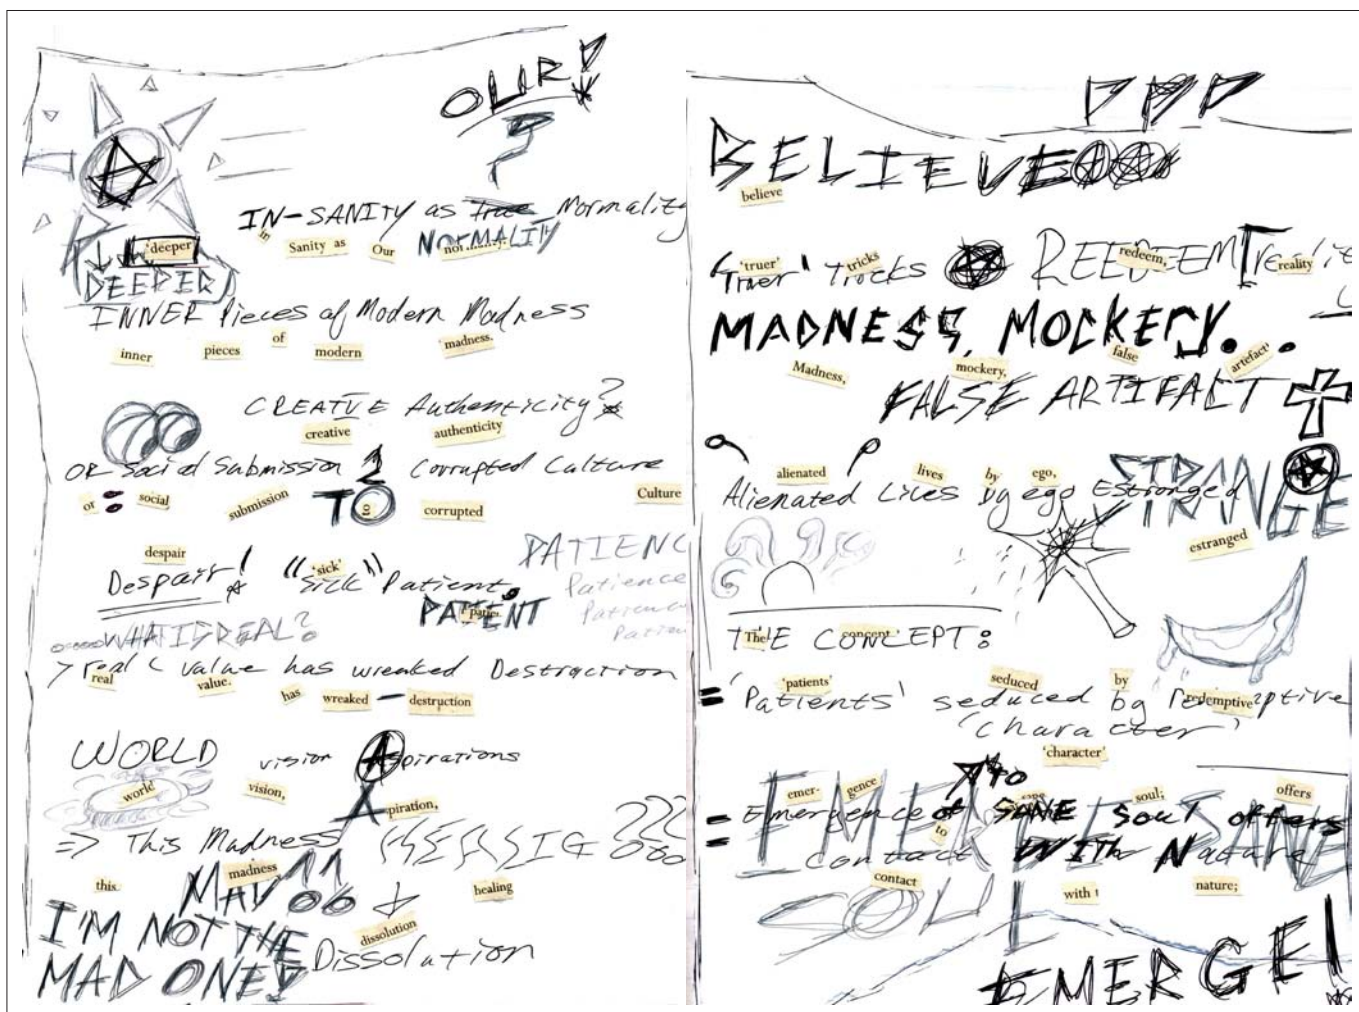 OUR!
IN-SANITY as true Normality
NORMALITY
in Sanity as Our nor
'deeper
DEEPER
INNER Pieces of Modern Madness
inner pieces of modern madness.
CREATIVE Authenticity?
creative authenticity
OR Social Submission Corrupted Culture
TO
or social submission corrupted Culture
despair 'sick'
PATIENC
Despair! "Sick" Patient.
Patience
PATIENT
Patienc
Patien
WHAT IS REAL?
> real < value has wreaked Destruction
real value. has wreaked – destruction
WORLD vision Aspirations
world vision, piration,
=> This Madness
this madness healing
MAD
I'M NOT THE
MAD ONE!
dissolution
Dissolution
BELIEVE
believe
'truer' tricks redeem, reality
'Truer' tricks REEDEEM realit
MADNESS, MOCKERY...
Madness, mockery, false artefact'
FALSE ARTIFACT
alienated lives by ego,
STRANGE
Alienated Lives by ego Estranged
estranged
THE CONCEPT:
The concept
'patients' seduced by redemptive
= 'Patients' seduced by redemptive
'character'
'character'
emer- gence soul; offers
= Emergence of SANE Soul offers
EMER
SANE
to
contact WITH Nature
contact with nature;
SOUL
EMERGE!